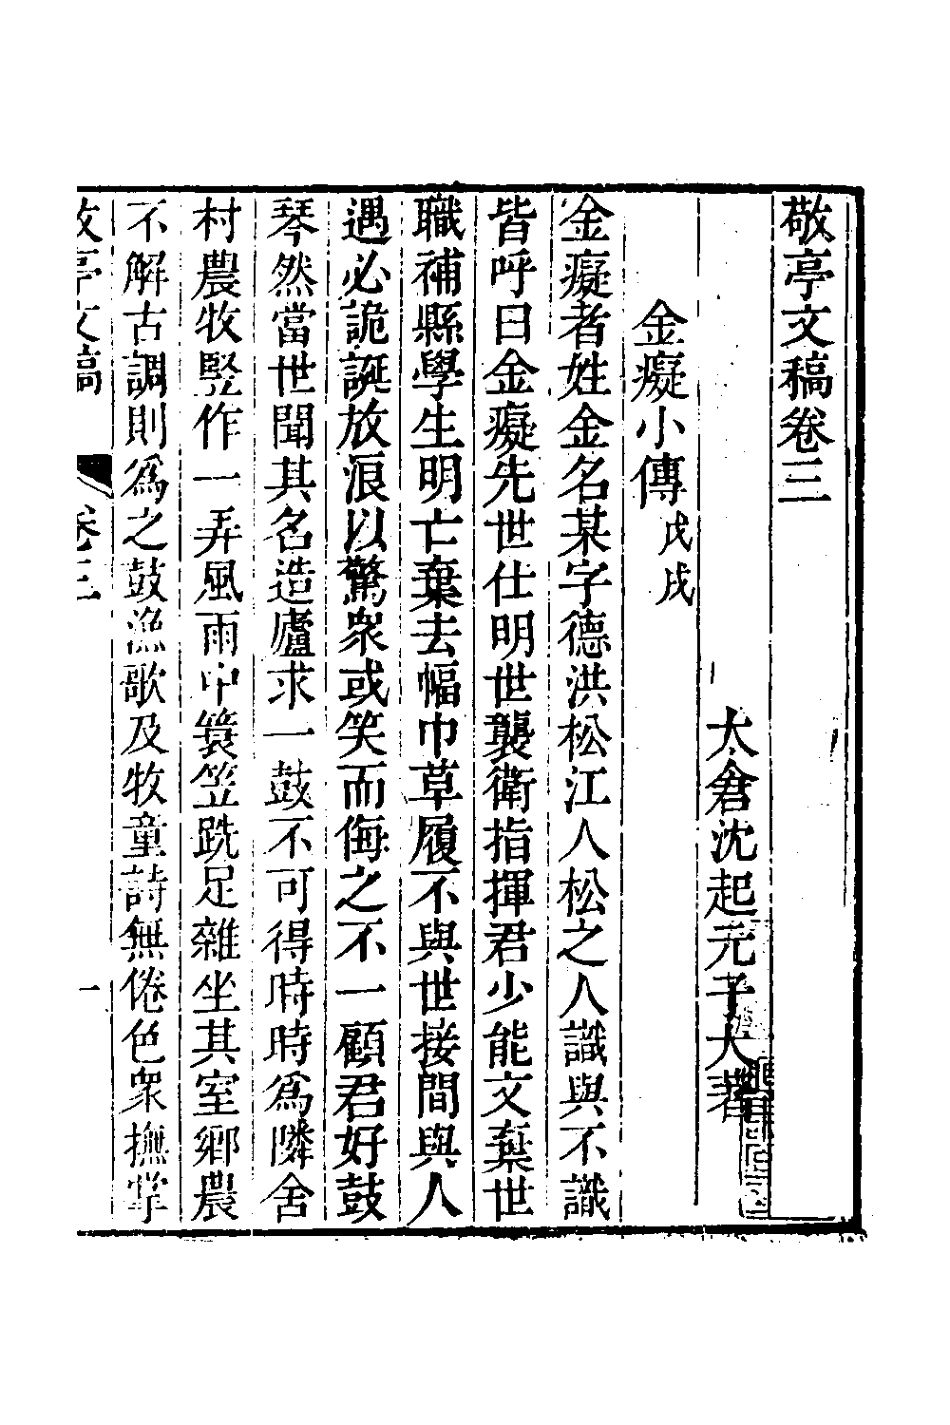 敬亭文稿卷三
太倉沈起元子大著
金癡小傳戊戌
金癡者姓金名某字德洪松江人松之人識與不識
皆呼曰金癡先世仕明世襲衛指揮君少能文棄世
職補縣學生明亡棄去幅巾草履不與世接間與人
遇必詭誕放浪以驚衆或笑而侮之不一顧君好鼓
琴然當世聞其名造廬求一鼓不可得時時爲隣舍
村農牧豎作一弄風雨中簑笠跣足雜坐其室鄉農
不解古調則爲之鼓漁歌及牧童詩無倦色衆撫掌
敬亭文稿 卷三 一